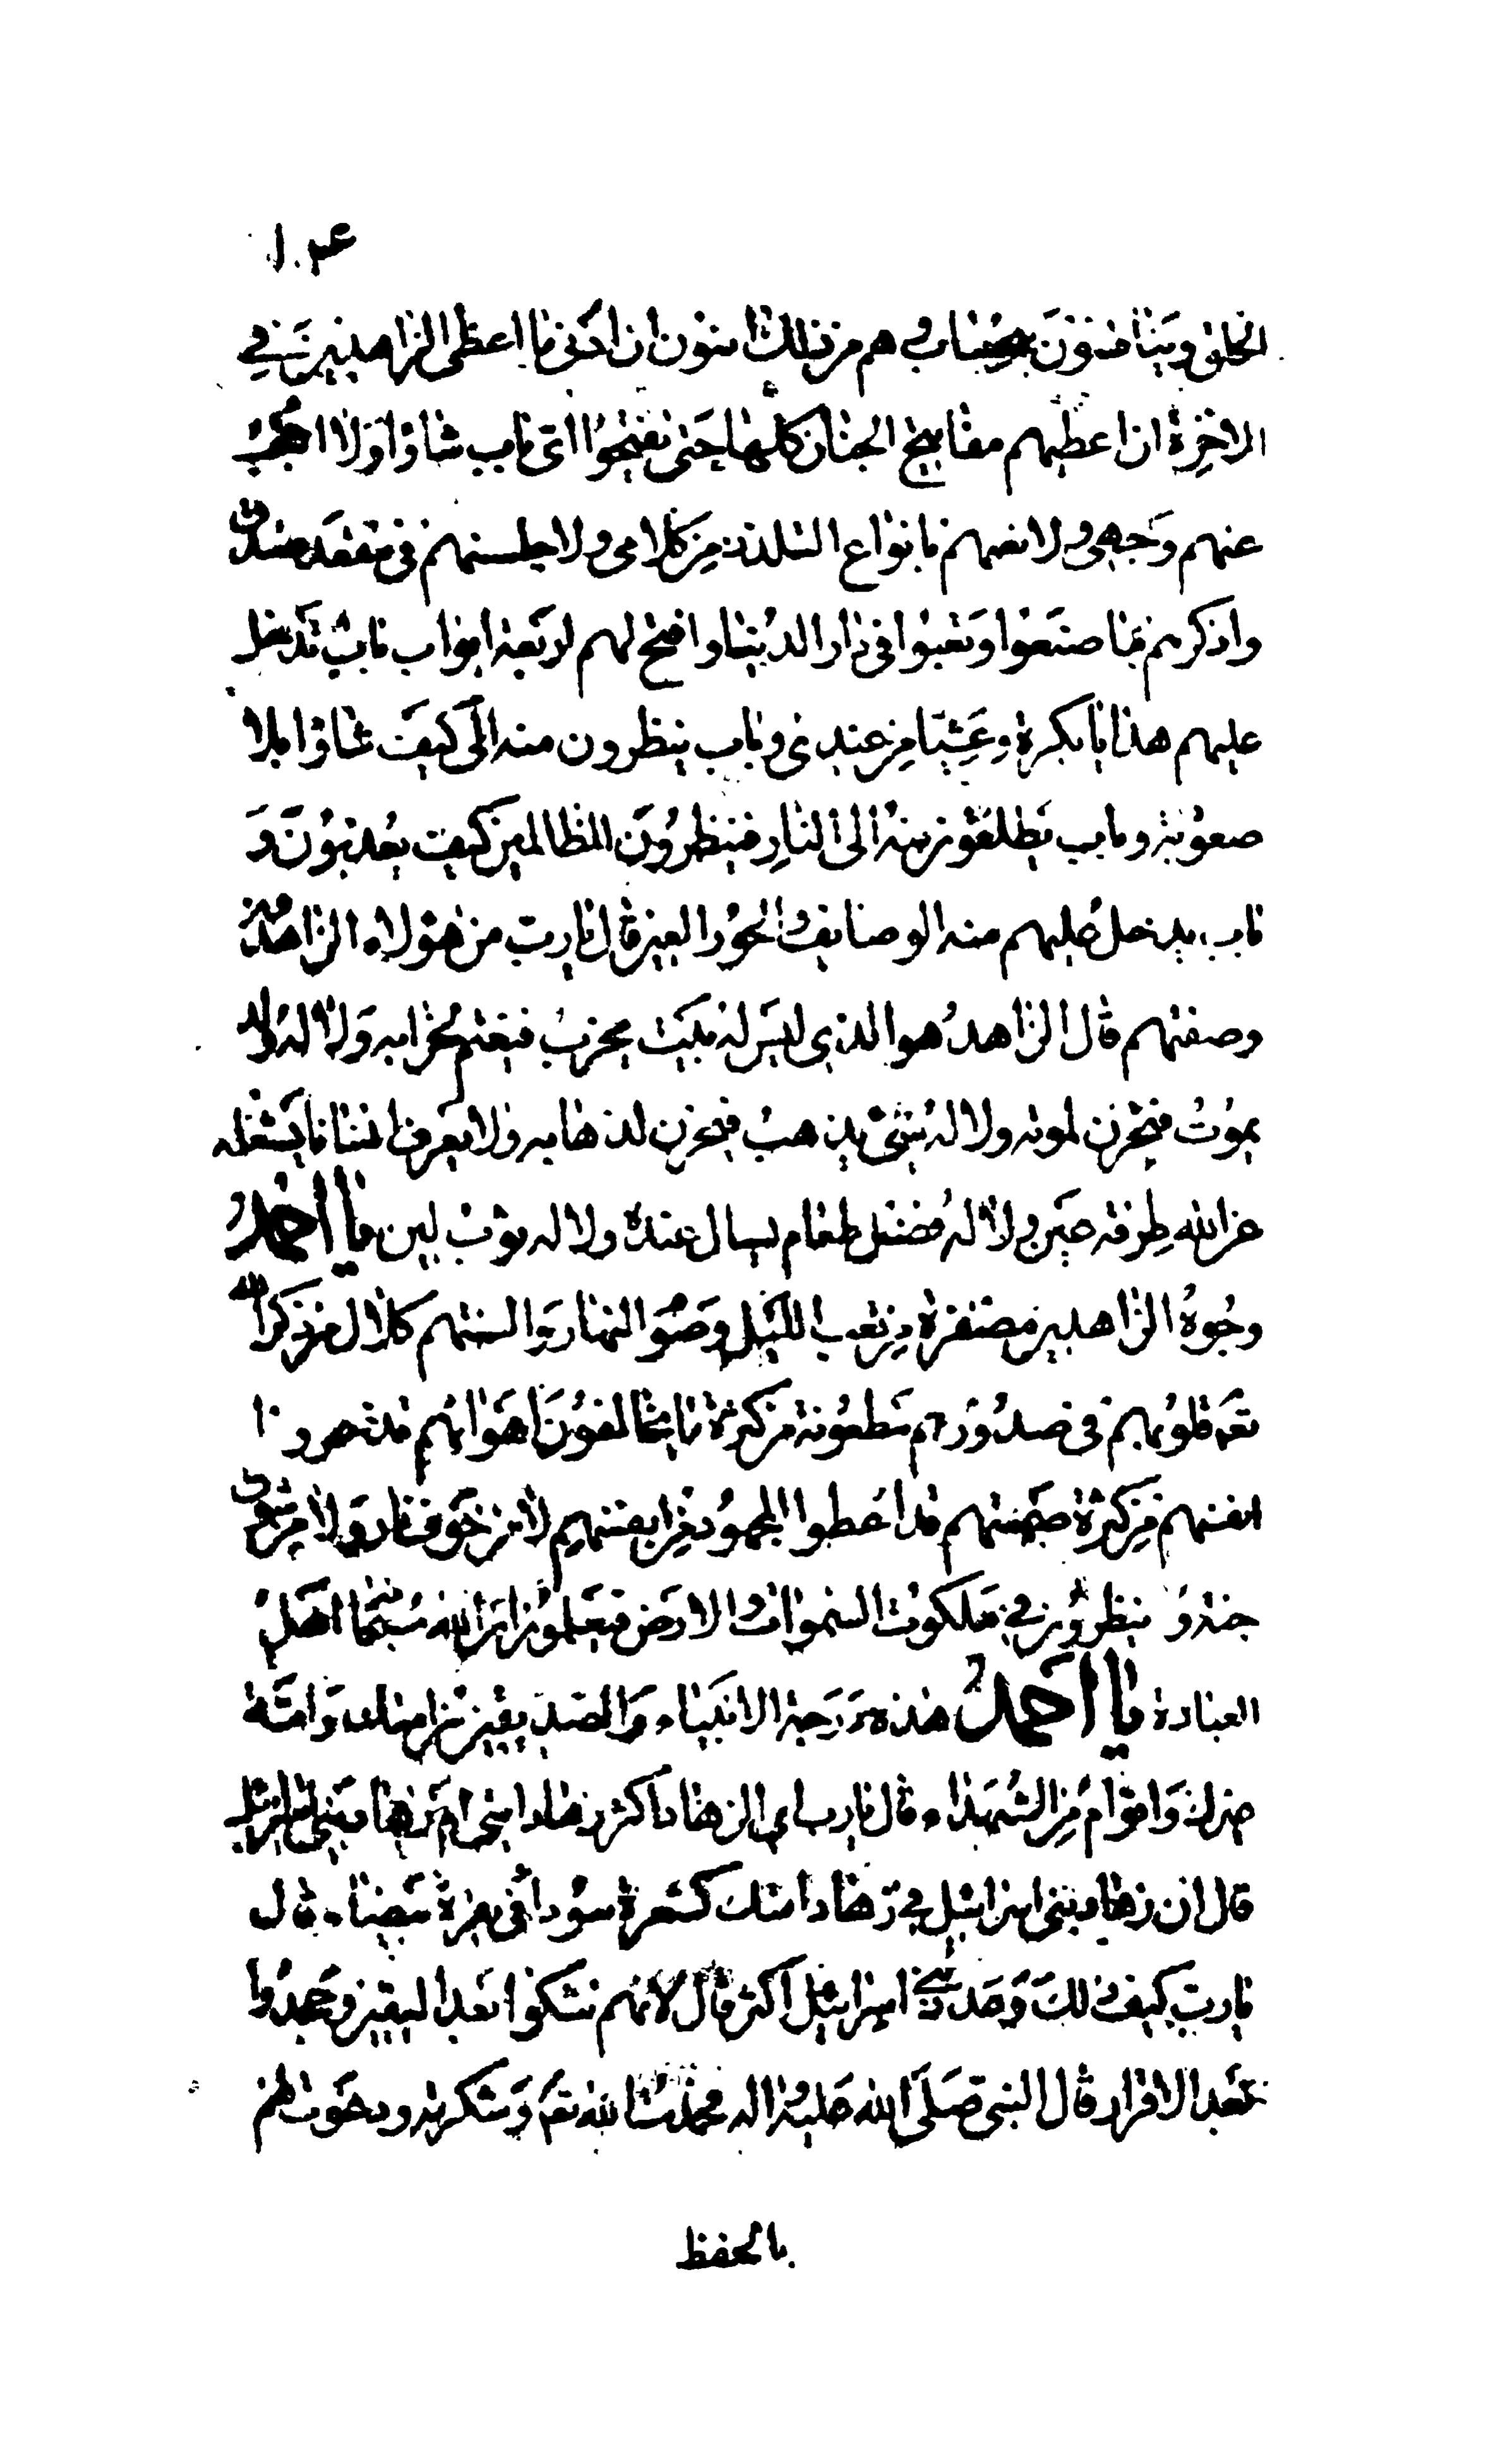 ١٠٣
الخلق ويناقشون بالحساب وهم من ذلك امنون ان ادنى ما اعطى الزاهدين في
الاخرة ان اعطيهم مفاتيح الجنان كلها حتى يفتحوا اى باب شاؤا ولا احجب
عنهم وجهى ولانعمنهم بانواع التلذذ من كلامى ولاجلسنهم فى مقعد صدق
واذكرهم بما صنعوا وتعبوا فى دار الدنيا وافتح لهم اربعة ابواب باب تدخل
عليهم هدايا بكرة وعشيا من عندى وباب ينظرون منه الى كيف شاؤا بلا
صعوبة وباب يطلعون منه الى النار فينظرون الظالمين كيف يعذبون و
باب يدخل عليهم منه الوصايف والحور العين قال يا رب من هؤلاء الزاهدين
وصفتهم قال الزاهد هو الذى ليس له بيت يخرب فيغتم بخرابه ولا له ولد
يموت فيحزن لموته ولا له شئ يذهب فيحزن لذهابه ولا يعرفه انسانا يشغله
عن الله طرفة عين ولا له فضل طعام يسال عنه ولا له ثوب لين يا احمد
وجوه الزاهدين مصفرة من تعب الليل وصوم النهار والسنتهم كلال من ذكر الله
تعـ قلوبهم فى صدورهم مطعونة من كثرة ما يخالفون اهوائهم قد ضمروا
انفسهم من كثرة صمتهم قد اعطوا المجهود من انفسهم لا من خوف نار ولا من شوق
جنة و ينظرون فى ملكوت السموات والارض فيعلمون ان الله سبحانه اهل
العبادة يا احمد هذه درجة الانبياء والصديقين من امتك وامة
غيرك واقوام من الشهداء قال يا رب اى الزهاد اكثر زهاد امتى ام زهاد بنى اسرائيل
قال ان زهاد بنى اسرائيل فى زهاد امتك كشعرة سوداء فى بقرة بيضاء قال
يا رب كيف ذلك وعدد بنى اسرائيل اكثر قال لانهم شكوا بعد اليقين وجحدوا
بعد الاقرار قال النبى صلى الله عليه واله فحمدت الله تعـ وشكرته ودعوت لهم
بالحفظ